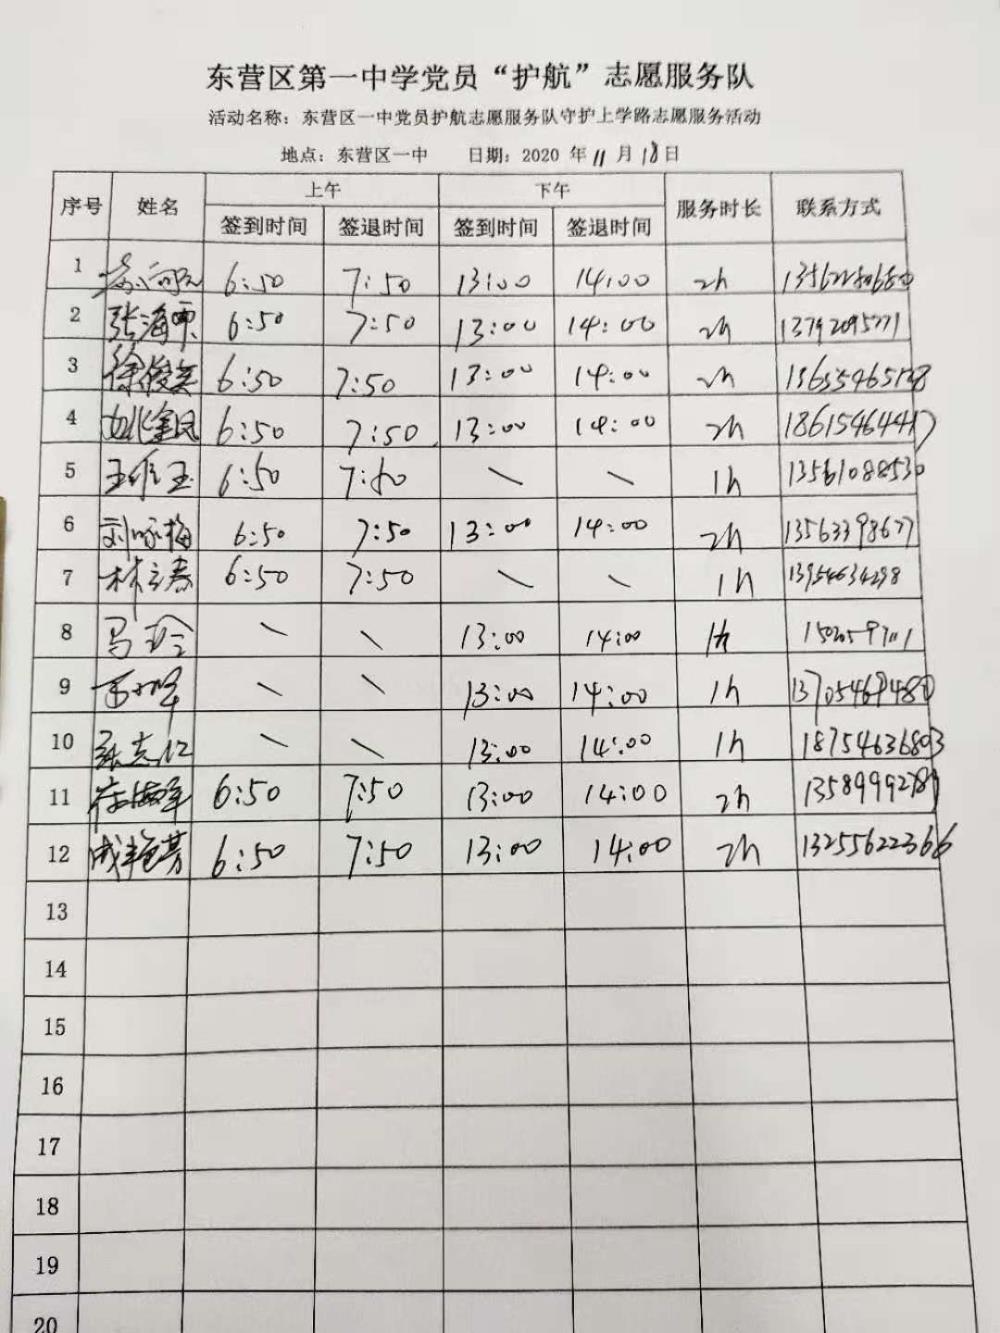 东营区第一中学党员“护航”志愿服务队
活动名称：东营区一中党员护航志愿服务队守护上学路志愿服务活动
地点：东营区一中 日期：2020 年 11 月 18 日
序号 姓名 上午 下午 服务时长 联系方式
签到时间 签退时间 签到时间 签退时间
1 6:50 7:50 13:00 14:00 2h
2 张海燕 6:50 7:50 13:00 14:00 2h 13792095771
3 徐俊英 6:50 7:50 13:00 14:00 2h
4 姚金凤 6:50 7:50 13:00 14:00 2h 18615464417
5 王维玉 6:50 7:50 — — 1h 13561088530
6 刘咏梅 6:50 7:50 13:00 14:00 2h 13563398677
7 林立春 6:50 7:50 — — 1h 13954634298
8 马玲 — — 13:00 14:00 1h
9 — — 13:00 14:00 1h 13705469480
10 张志仁 — — 13:00 14:00 1h 18754636803
11 6:50 7:50 13:00 14:00 2h 13589992789
12 成艳芳 6:50 7:50 13:00 14:00 2h 13255622366
13
14
15
16
17
18
19
20